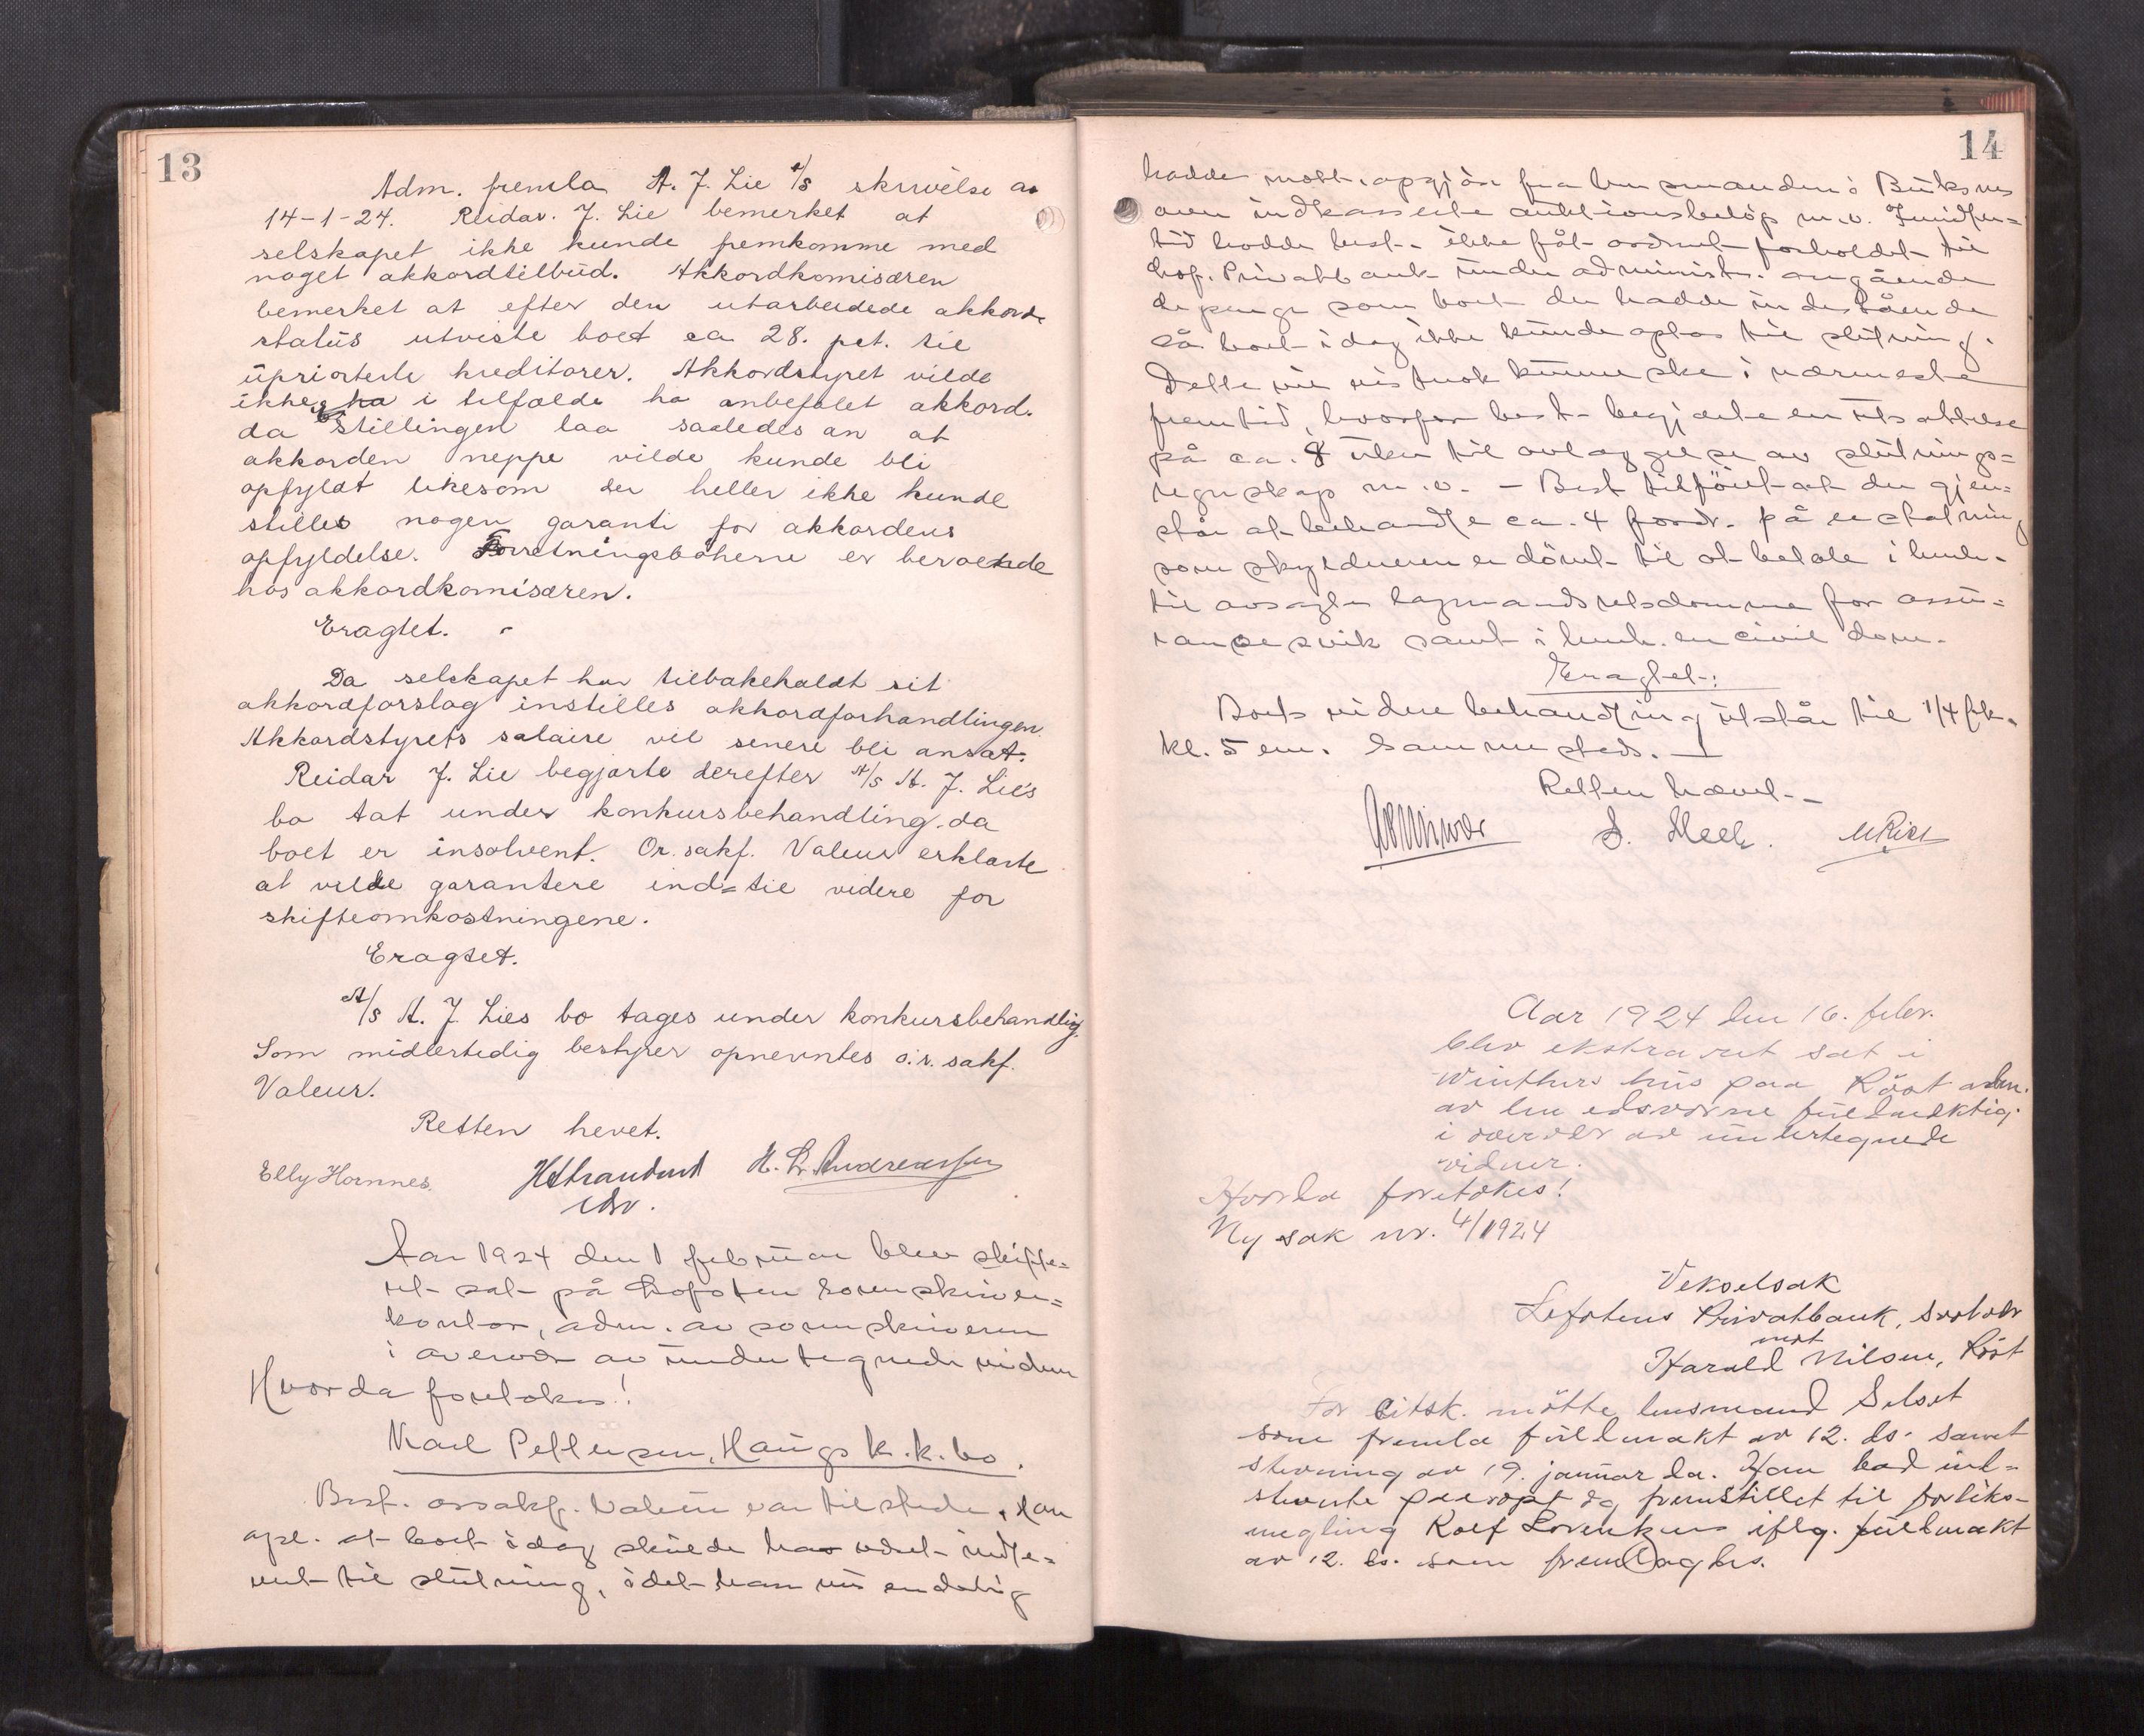 13
Adm. fremla A. J. Lie A/S skrivelse av
14-1-24. Reidar. J. Lie bemerket at
selskapet ikke kunde fremkomme med
noget akkordtilbud. Akkordkomisæren
bemerket at efter den utarbeidede akkords
status utviste boet ca 28. pct. til
upriorterte kreditorer. Akkordstyret vilde
ikke i tilfælde ha anbefalet akkord.
da stillingen laa saaledes an at
akkorden neppe vilde kunde bli
opfyldt likesom der heller ikke kunde
stilles nogen garanti for akkordens
opfyldelse. Forretningsbøkerne er beroende
hos akkordkomisæren.
Eragtet.
Da selskapet har tilbakeholdt sit
akkordforslag instilles akkordforhandlingen.
Akkordstyrets salaire vil senere bli ansat.
Reidar J. Lie begjærte derefter A/S A. J. Lie's
bo tat under konkursbehandling da
boet er insolvent. Or. sakf. Valeur erklærte
at vilde garantere ind-til videre for
skifteomkostningene.
Eragtet.
A/S A. J. Lies bo tages under konkursbehandlig.
Som midlertidig bestyrer opnevntes o.r. sakf.
Valeur.
Retten hevet.
Elly Hornnes. H. L. Andreassen
Aar 1924 den 1 februar blev skifte=
ret sat på Lofoten sorenskriver=
kontor, adm. av sorenskriveren
i overvær av undertegnede vidner
Hvorda foretokes!
Karl Pettersen, Haugs k.k.bo.
Best. orsakf. Valeur var tilstede. Han
opl. at boet idag skulde ha været indle=
vert til slutning, idet han nu endelig
14
hadde mott. opgjör fra lensmanden i Buksnes
over indkasserte auktionsbelöp m.v. Imidler=
tid hadde best. ikke fåt ordnet forholdet til
Lof. Privatbank under administr. angående
de penge som boet der hadde indestående
så boet idag ikke kunde optas til slutning.
Dette vil vistnok kunne ske i nærmeste
fremtid, hvorfor best. begjærte en utsættelse
på ca. 8 uker til avlæggelse av slutnings=
regnskap m.v. - Best tilföiet at der gjen=
står at behandle ca. 4 fordr. på erstatning
som skyldneren er dömt til at betale i henh.
til avsagte lagmandsretsdomme for assu=
ranse svik samt i henh. en civil dom.
Eragtet:
Boets videre behandling utstår til 1/4 fk.
kl. 5 em. sammesteds.
Retten hævet.
Aar 1924 den 16. febr.
blev ekstraret sat i
Winthers hus paa Röst adm.
av den edsvorne fuldmektig
i overvær av undertegnede
vidner.
Hvorda foretokes!
Ny sak nr. 4/1924
Vekselsak
Lofotens Privatbank, Svolvær
mot
Harald Nilsen, Röst
For citsk. mötte lensmand Selset
som fremla fuldmakt av 12. ds. samt
stevning av 19. januar da. Han bad ind-
stevnte paaropt og fremstillet til forliks-
megling Rolf Lorentzen iflg. fuldmakt
av 12. ds. som fremlagdes.